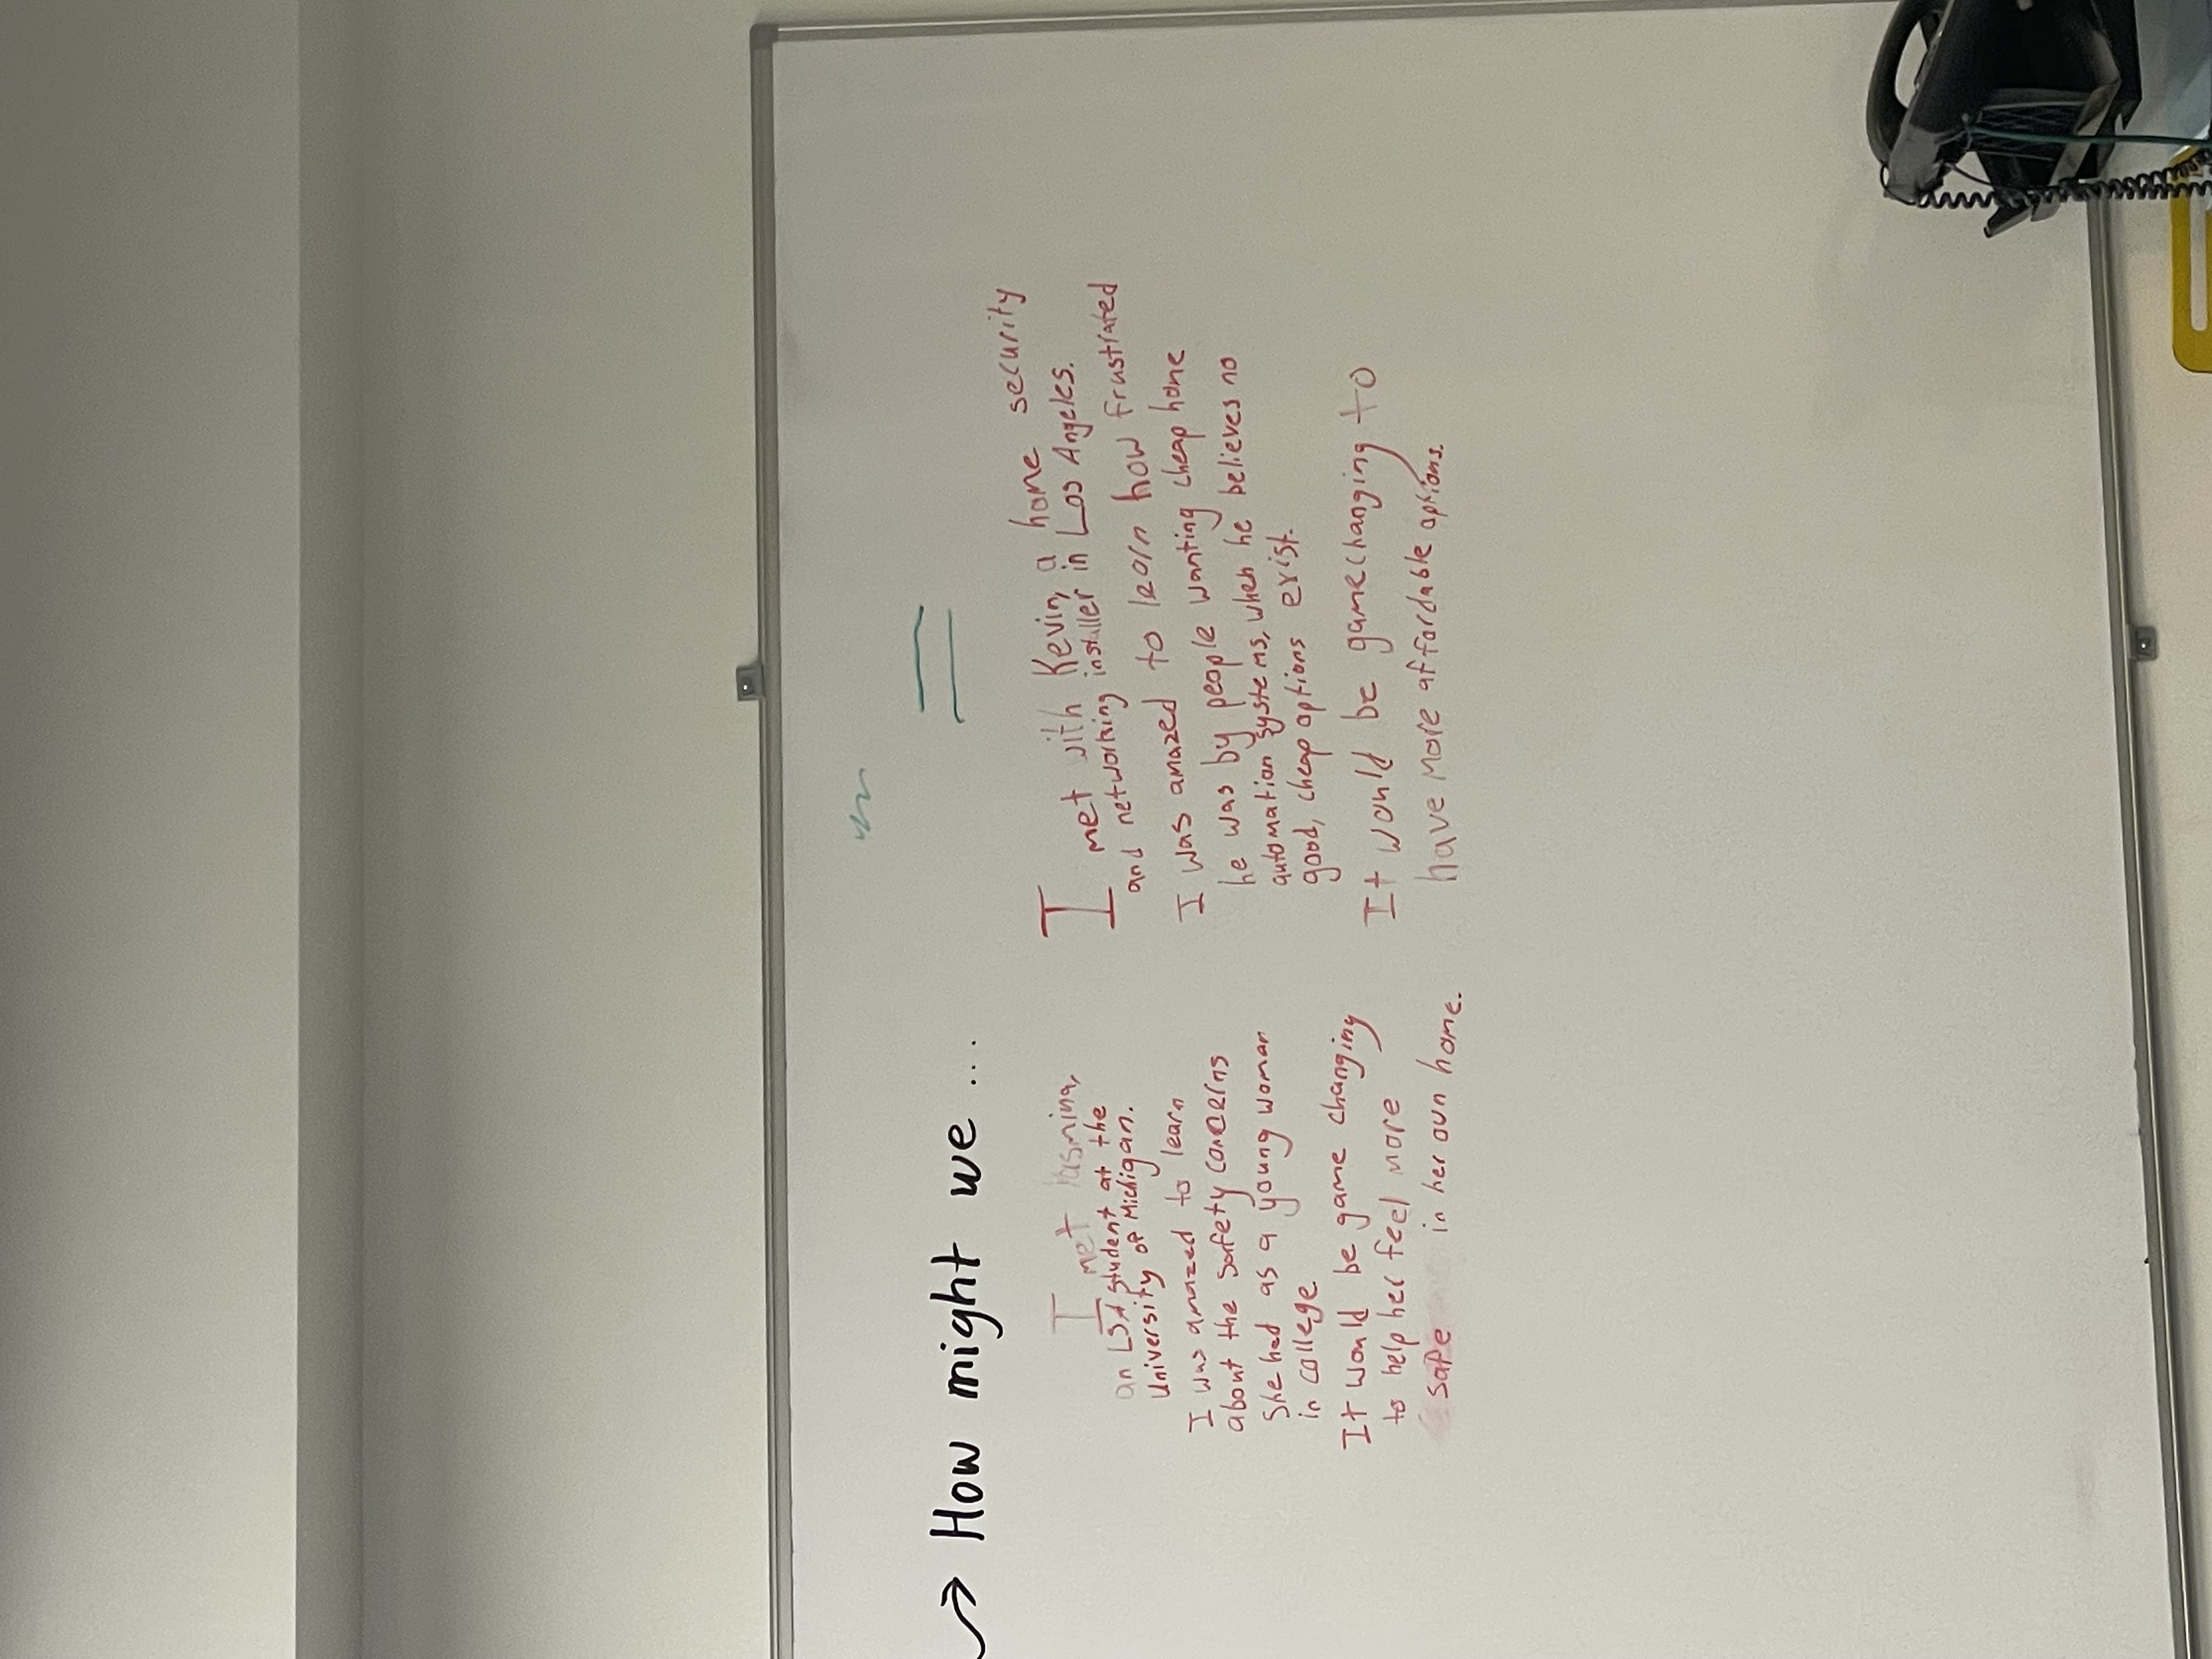 How might we ...
I met Yasmina,
an LSA student at the
University of Michigan.
I was amazed to learn
about the safety concerns
She had as a young woman
in college
It would be game changing
to help her feel more
safe in her own home.
I met with Kevin, a home security
and networking installer in Los Angeles.
I was amazed to learn how frustrated
he was by people wanting cheap home
automation systems, when he believes no
good, cheap options exist.
It would be gamechanging to
have more affordable options.